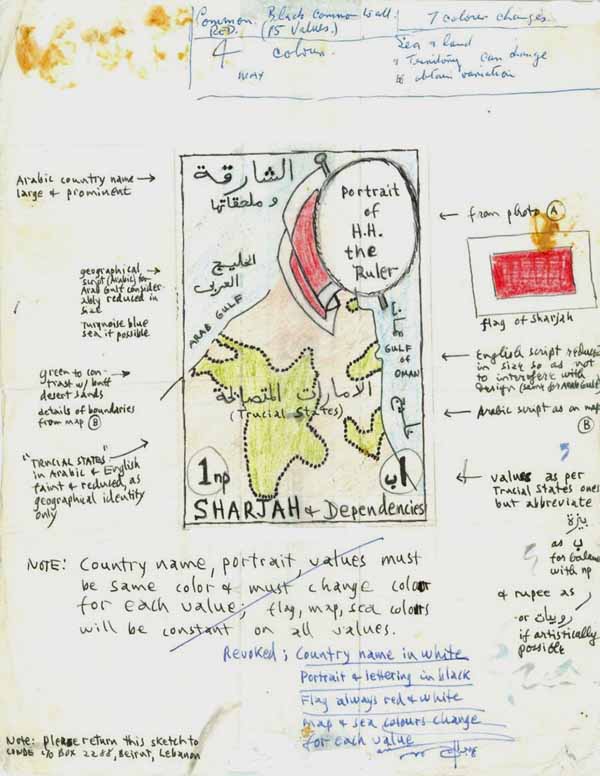 Common RED.
Black common to all. (15 values.)
7 colour changes.
4 colour.
WAY
Sea & land
Territory can change
to obtain variation
Arabic country name →
large & prominent
الشارقة
و ملحقاتها
Portrait
of
H.H.
the
Ruler
← from photo A
flag of Sharjah
geographical →
script (Arabic) for
Arab Gulf consider-
ably reduced in
size
Turquoise blue
sea if possible
الخليج
العربي
ARAB GULF
خليج
عمان
GULF
OF
OMAN
← English script reduced
in size so as not
to interfere with
design (same for Arab Gulf)
green to con- →
trast w/ buff
desert sands
details of boundaries
from map B
الامارات المتصالحة
(Trucial States)
← Arabic script as on map
B
"TRUCIAL STATES" →
in Arabic & English
faint & reduced, as
geographical identity
only
← values as per
Trucial States ones
but abbreviate
بيزة
as ب
for balance
with np
& rupee as
or روبيات
if artistically
possible
1np
١ب
SHARJAH & Dependencies
NOTE: Country name, portrait, values must
be same color & must change color
for each value; flag, map, sea colours
will be constant on all values.
Revoked; Country name in white
Portrait & lettering in black
Flag always red & white
Map & sea colours change
for each value
Note: Please return this sketch to
CONDE c/o BOX 2288, Beirut, Lebanon